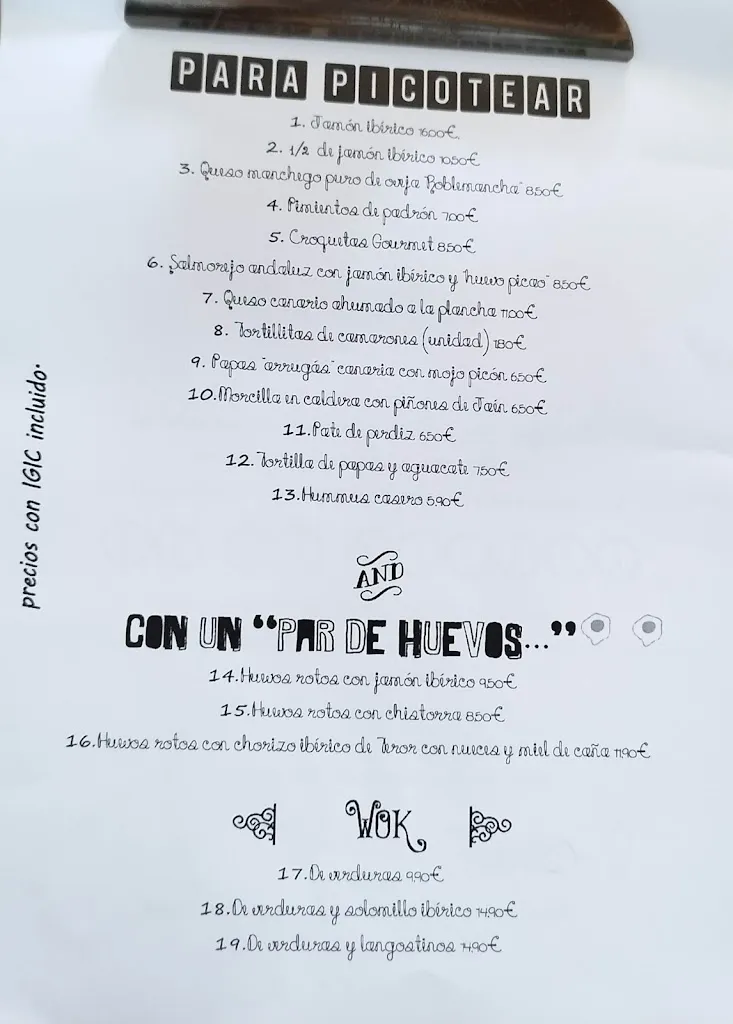 PARA PICOTEAR
1. Jamón ibérico 16.00€
2. 1/2 de jamón ibérico 10.50€
3. Queso manchego puro de oveja "Roblemancha" 8.50€
4. Pimientos de padrón 7.00€
5. Croquetas Gourmet 8.50€
6. Salmorejo andaluz con jamón ibérico y "huevo picao" 8.50€
7. Queso canario ahumado a la plancha 11.00€
8. Tortillitas de camarones (unidad) 1.80€
9. Papas "arrugás" canaria con mojo picón 6.50€
10.Morcilla en caldera con piñones de Jaén 6.50€
11.Pate de perdiz 6.50€
12. Tortilla de papas y aguacate 7.50€
13.Hummus casero 5.90€
precios con IGIC incluido.
AND
CON UN "PAR DE HUEVOS..."
14.Huevos rotos con jamón ibérico 9.50€
15.Huevos rotos con chistorra 8.50€
16.Huevos rotos con chorizo ibérico de Teror con nueces y miel de caña 11.90€
WOK
17.De verduras 9.90€
18.De verduras y solomillo ibérico 14.90€
19.De verduras y langostinos 14.90€